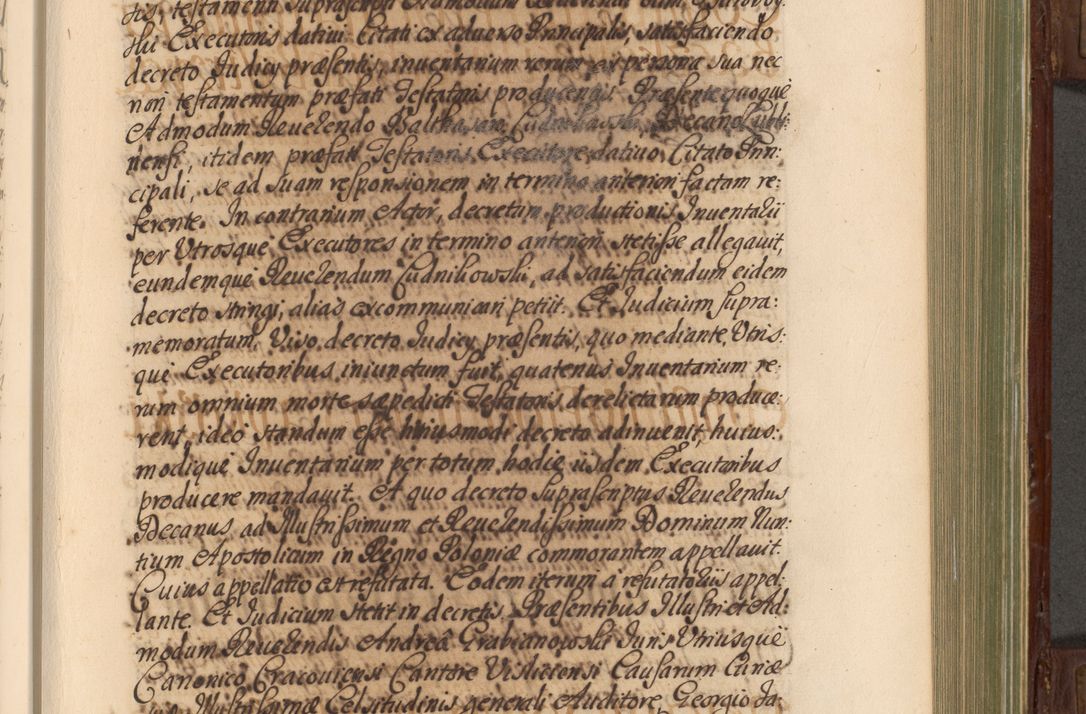 tis, testamenti suprascripti Admodum
ski Executoris dativi Citati ex adverso Principalis, satisfaciendo
decreto Judicij præsentis, inventarium rerum ex persona sua nec
non testamentum præfati Testatoris producentis. Præsente quoque
Admodum Reverendo Balthasare Cudnikowski, Decano Lubli:
nensi, itidem præfati Testatoris Executore dativo, Citato Prin:
cipali, se ad suam responsionem in termino anteriori factam re:
ferente. In contrarium Actor, decretum productionis Inventarij
per Utrosque Executores in termino anteriori stetisse allegavit,
eundemque Reverendum Cudnikowski, ad satisfaciendum eidem
decreto stringi, alias excommunicari petiit. Et Judicium supra:
memoratum, Viso decreto Judicij præsentis, quo mediante, Utris:
que Executoribus iniunctum fuit, quatenus Inventarium re:
rum omnium morte sæpedicti Testatoris derelictarum produce:
rent, ideo standum esse huiusmodi decreto adinvenit, huius:
modique Inventarium per totum hodie iisdem Executoribus
producere mandavit. A quo decreto Suprascriptus Reverendus
Decanus, ad Illustrissimum et Reverendissimum Dominum Nun:
tium Apostolicum in Regno Poloniæ commorantem appellavit.
Cuius appellatio est refutata. Eodem iterum a refutatorijs appel:
lante. Et Judicium stetit in decretis. Præsentibus Illustri et Ad:
modum Reverendis Andrea Grabianowski Juris Utriusque
Canonico Cracoviensi Cantore Visliciensi Causarum Curiæ
suæ Illustrissimæ Celsitudinis generali Auditore, Georgio Ja: